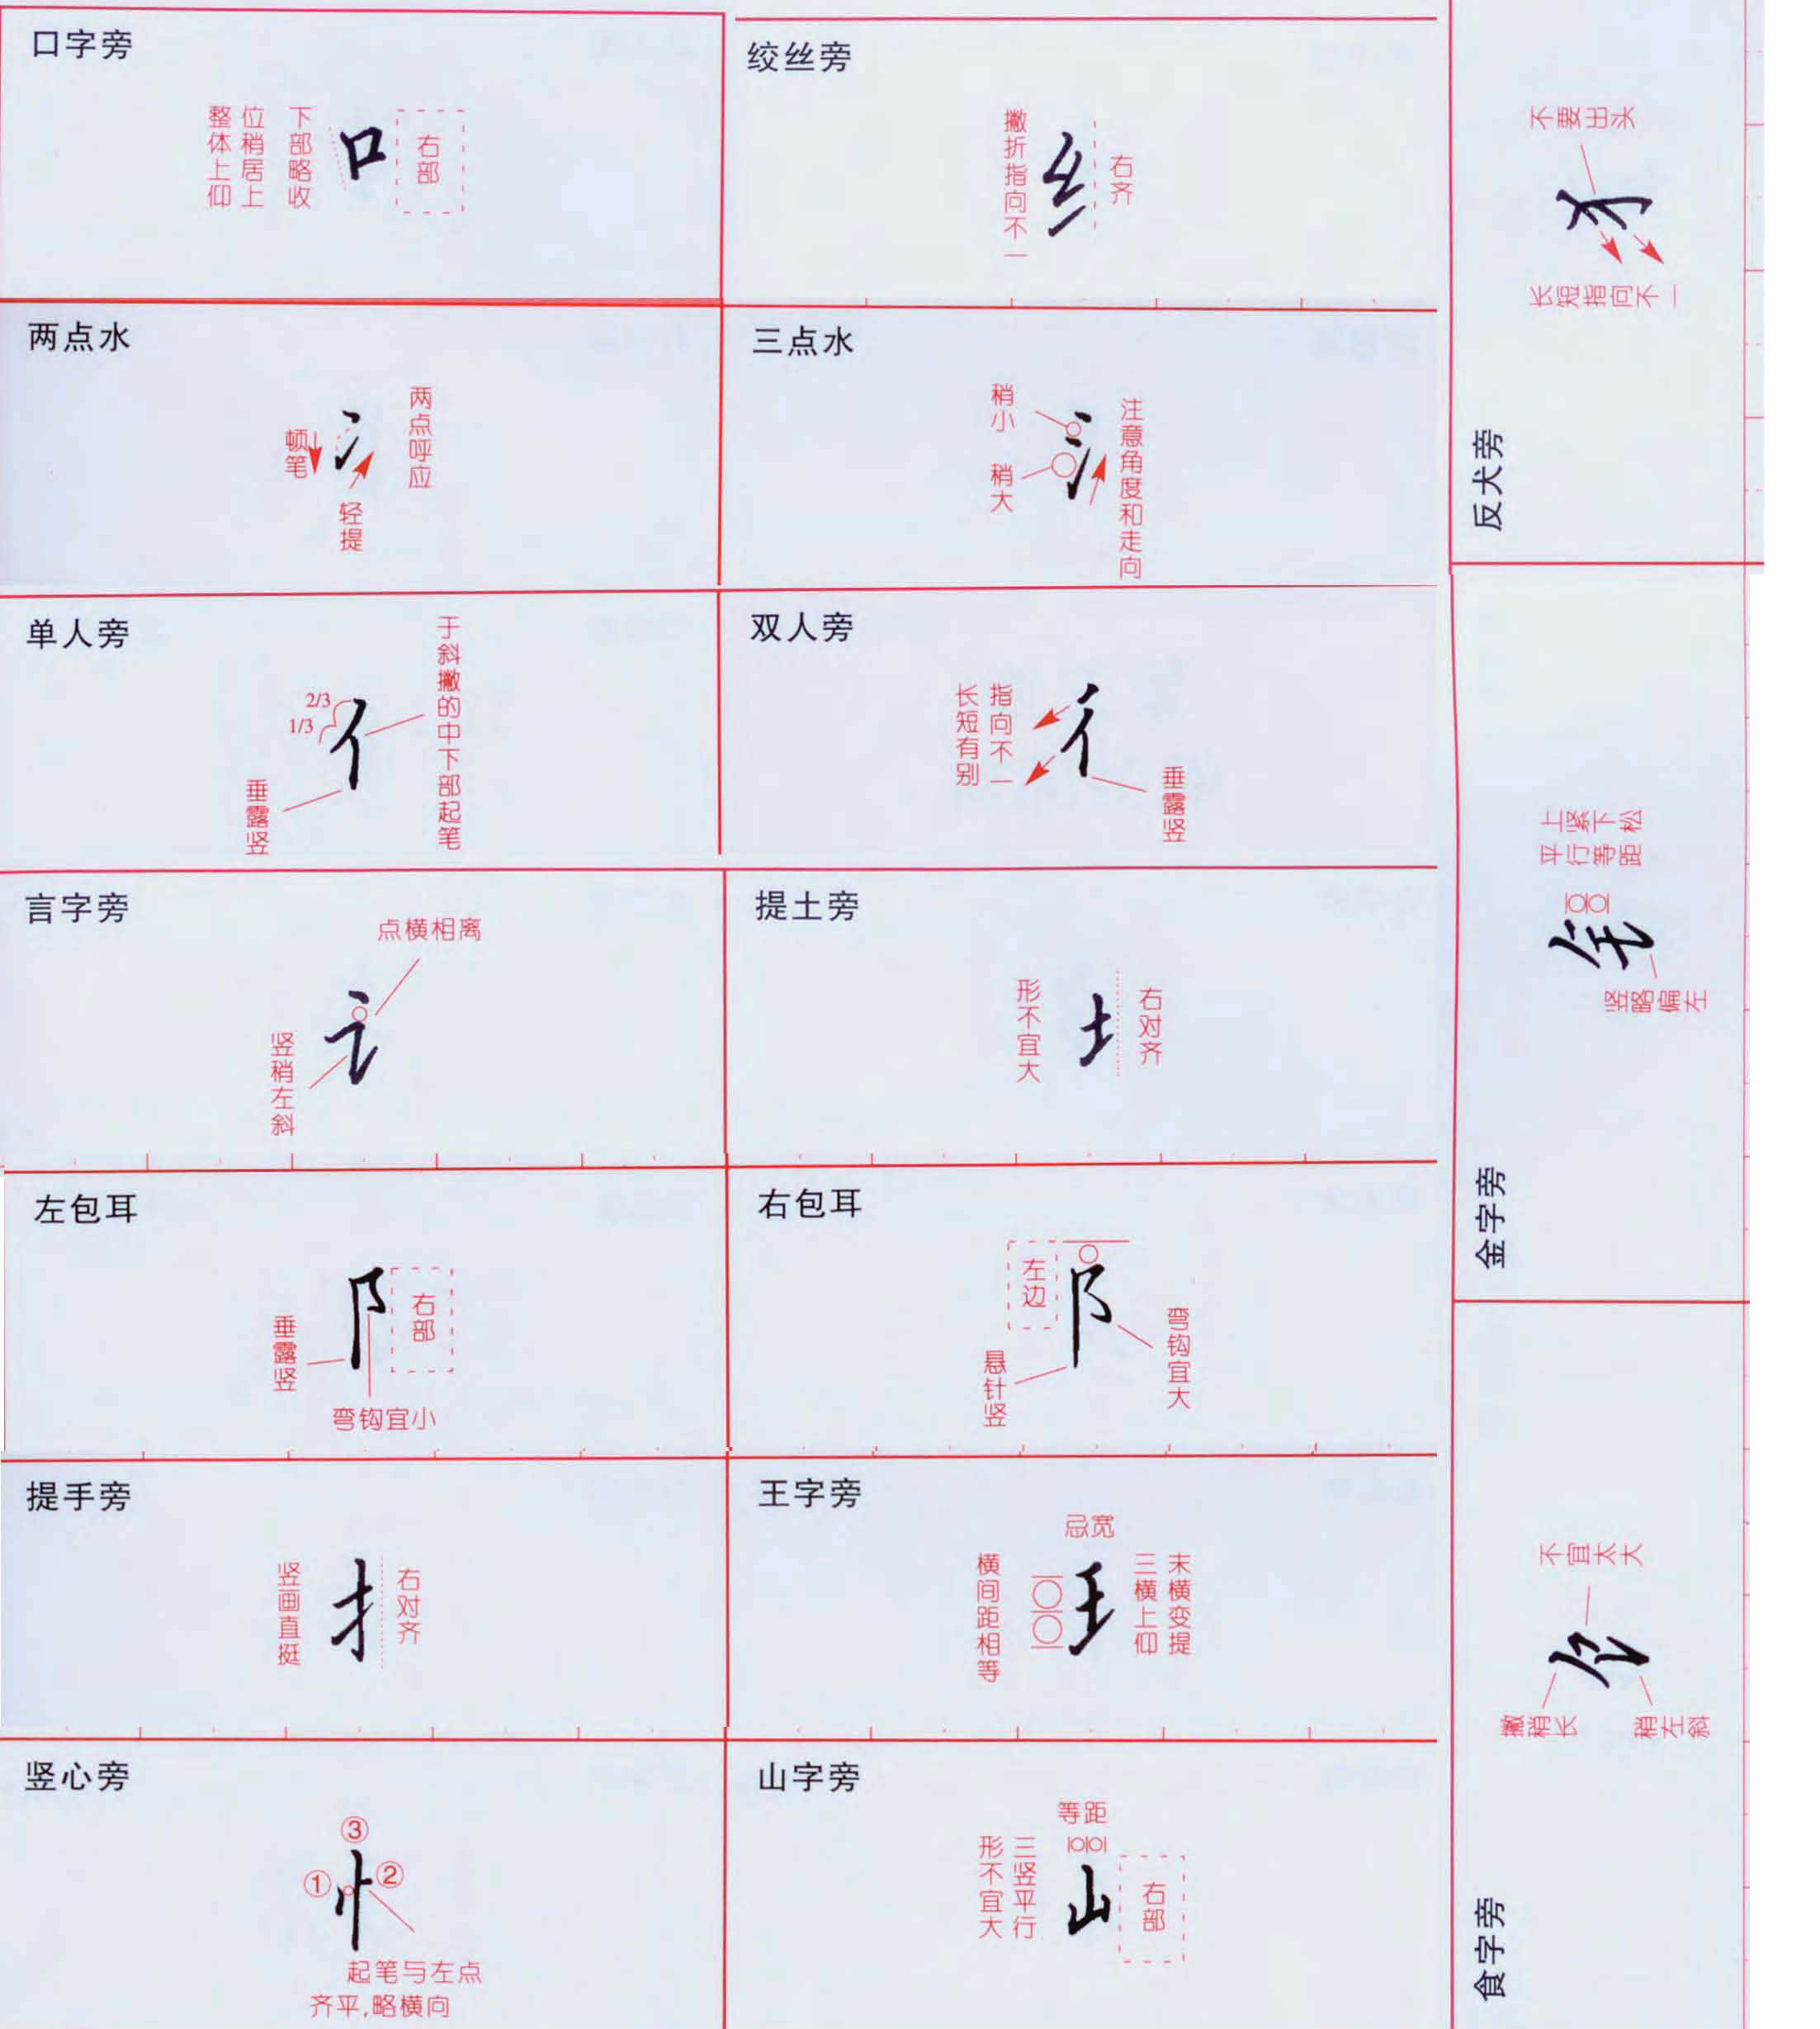 口字旁
整体上仰
位稍居上
下部略收
口
右部
绞丝旁
撇折指向不一
纟
右齐
两点水
顿笔
冫
轻提
两点呼应
三点水
稍小
稍大
氵
注意角度和走向
单人旁
2/3
1/3
亻
垂露竖
于斜撇的中下部起笔
双人旁
长短有别
指向不一
彳
垂露竖
言字旁
点横相离
讠
竖稍左斜
提土旁
形不宜大
土
右对齐
左包耳
垂露竖
阝
右部
弯钩宜小
右包耳
左边
阝
悬针竖
弯钩宜大
提手旁
竖画直挺
扌
右对齐
王字旁
忌宽
横间距相等
王
三横上仰
末横变提
竖心旁
③
①
②
忄
起笔与左点
齐平,略横向
山字旁
等距
形不宜大
三竖平行
山
右部
反犬旁
不要出头
犭
长短指向不一
金字旁
上紧下松
平行等距
钅
竖略偏左
食字旁
不宜太大
饣
撇稍长
稍左斜